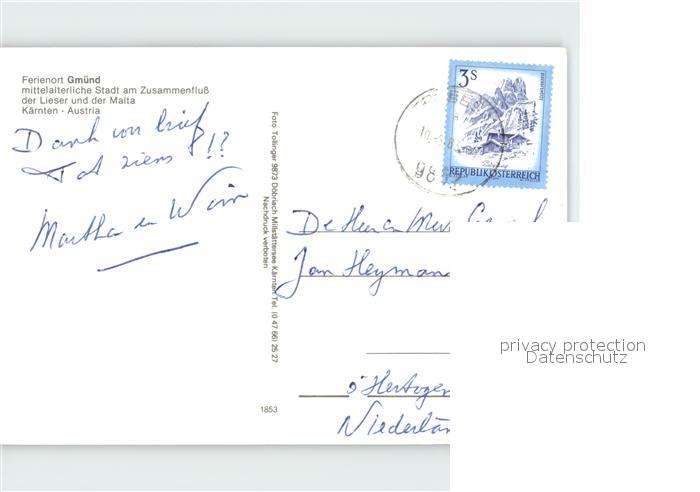 Ferienort Gmünd
mittelalterliche Stadt am Zusammenfluß
der Lieser und der Malta
Kärnten · Austria
Dank voor brief
Tot ziens !!?
Martha en Wim
Foto Tollinger 9873 Döbriach Millstättersee Kärnten Tel. (0 47 66) 25 27
Nachdruck verboten
1853
3 S
REPUBLIK ÖSTERREICH
De Heer en Mevr
Jan Heyman
s'Hertogen
Niederlän
privacy protection
Datenschutz